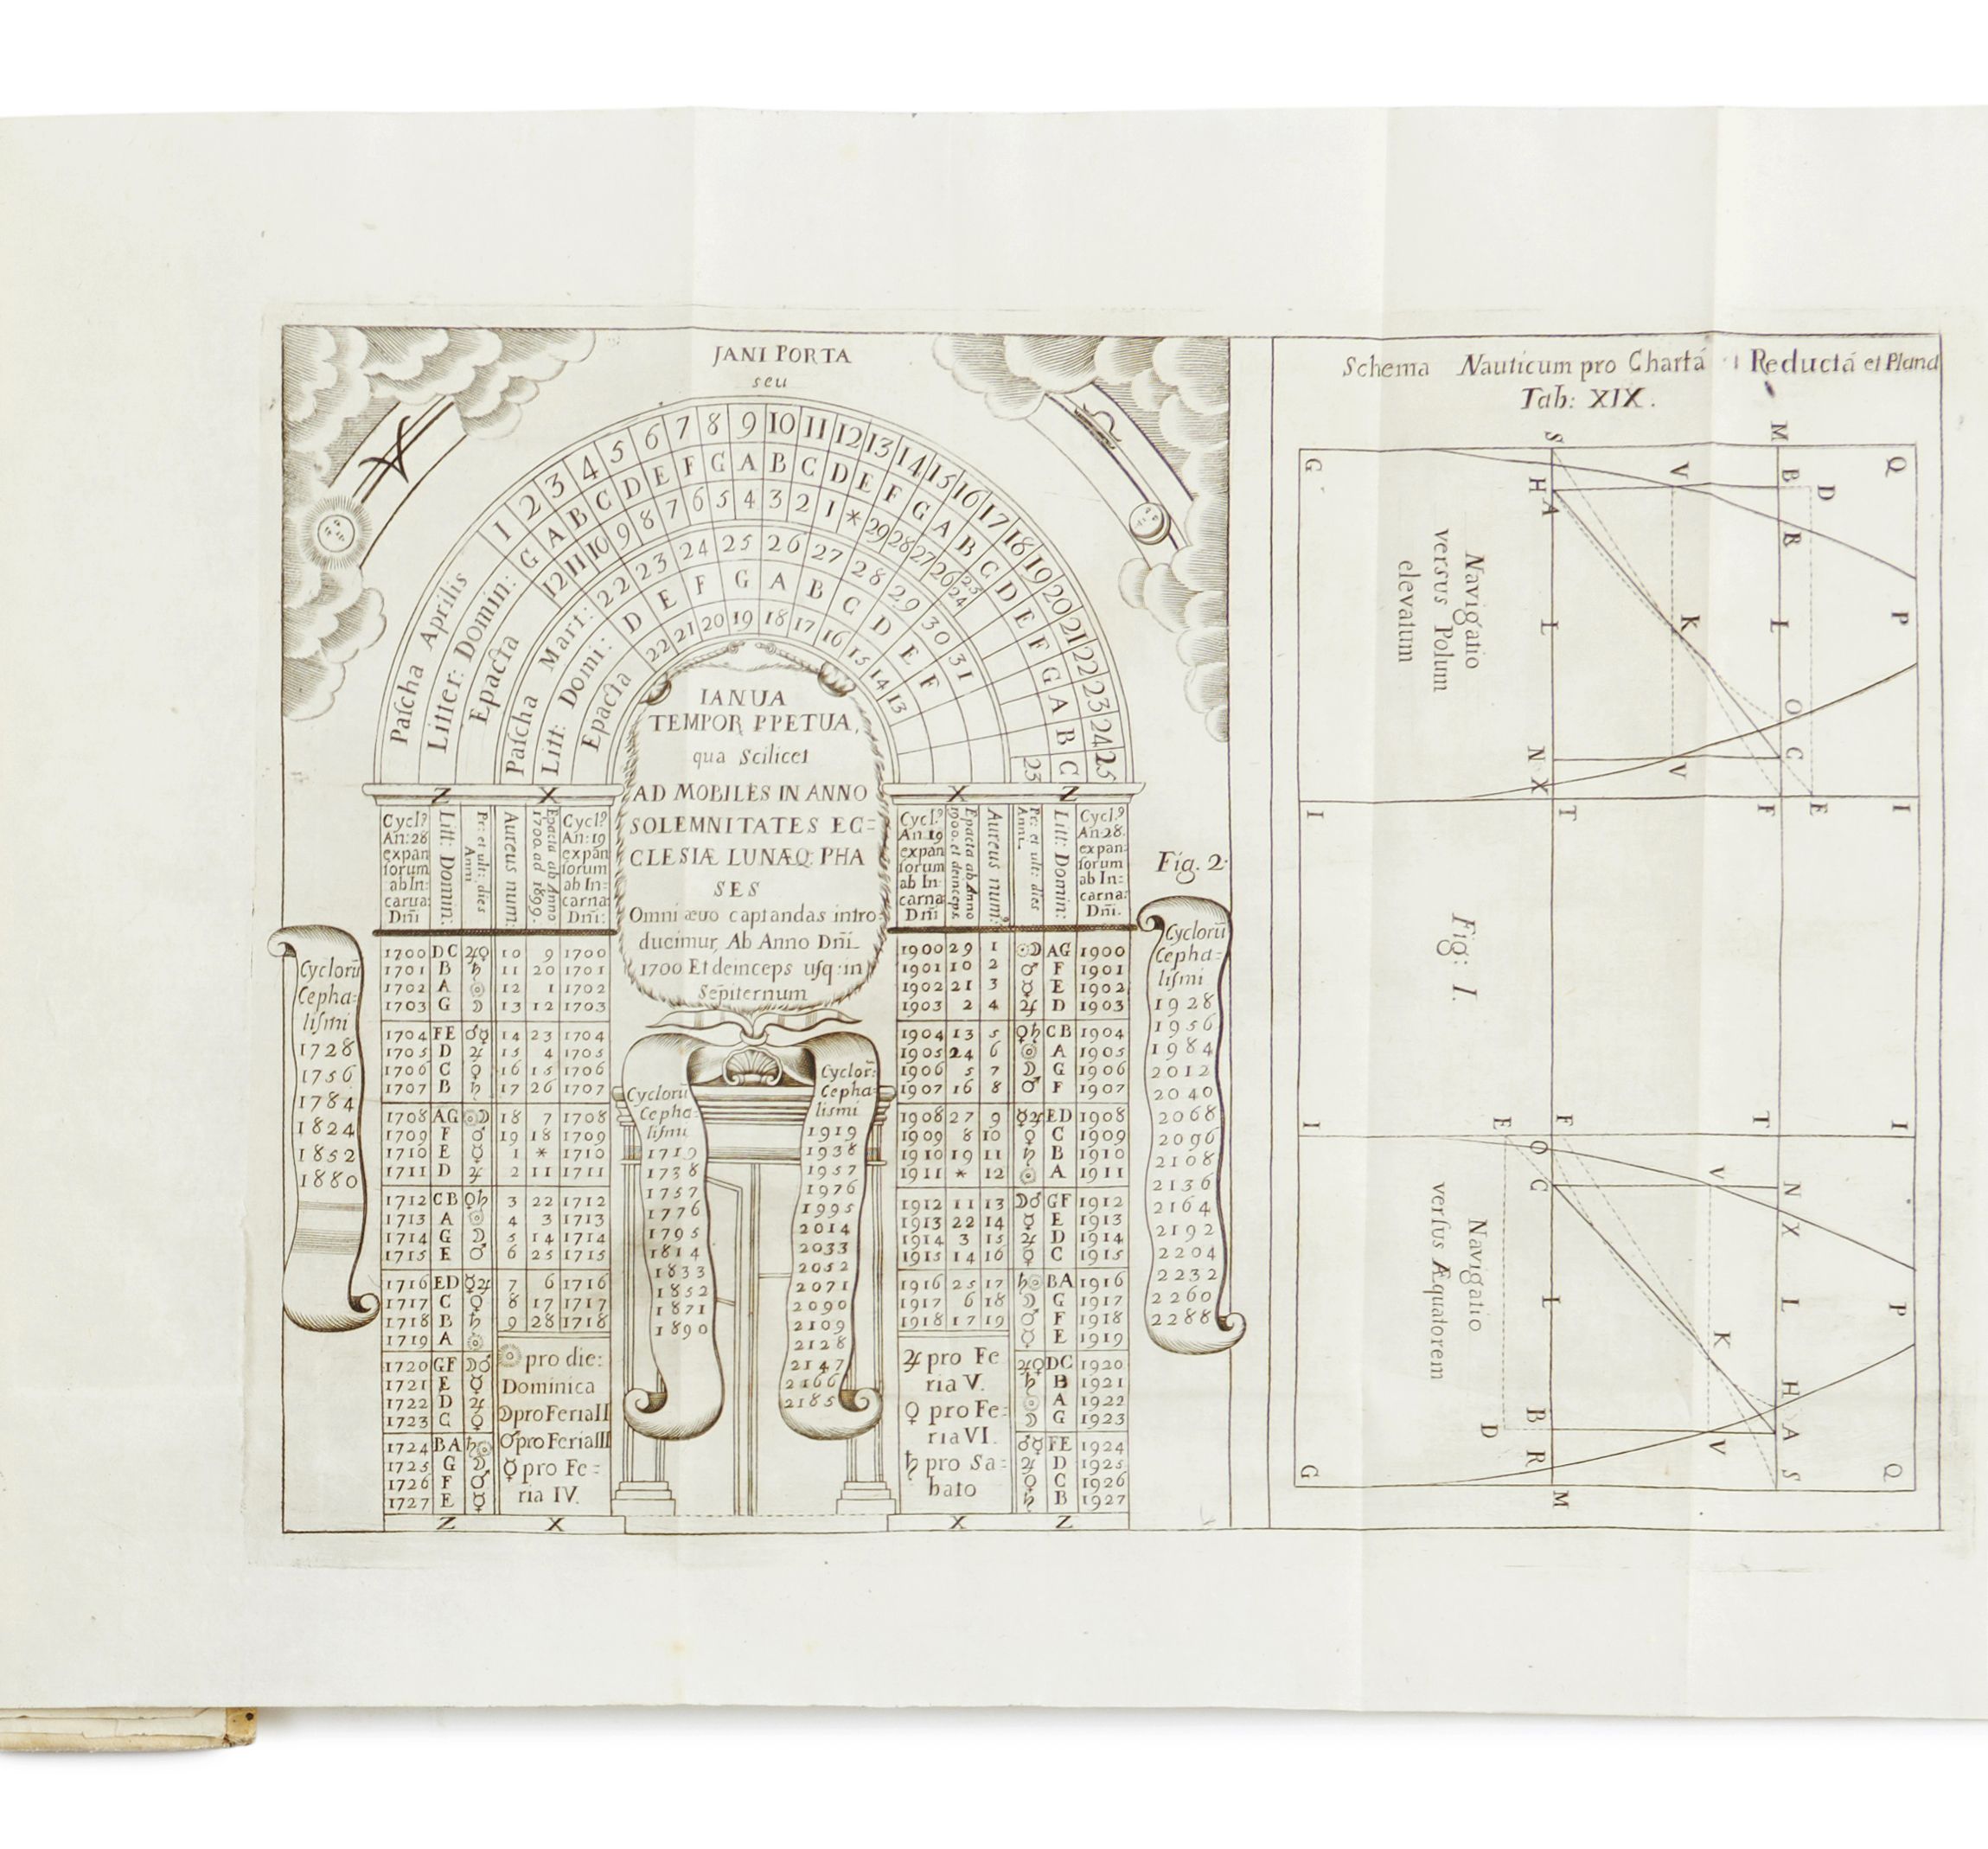 JANI PORTA
seu
Pascha Aprilis 1 2 3 4 5 6 7 8 9 10 11 12 13 14 15 16 17 18 19 20 21 22 23 24 25
Litter: Domin: G A B C D E F G A B C D E F G A B C D E F G A B C
Epacta 12 11 10 9 8 7 6 5 4 3 2 1 * 29 28 27 26 25 24 23
Pascha Mart: 22 23 24 25 26 27 28 29 30 31
Litt: Domi: D E F G A B C D E F
Epacta 22 21 20 19 18 17 16 15 14 13
IANUA
TEMPOR PPETUA,
qua Scilicet
AD MOBILES IN ANNO
SOLEMNITATES EC=
CLESIÆ LUNÆQ: PHA
SES
Omni ævo captandas intro=
ducimur, Ab Anno Dñi
1700 Et deinceps usq: in
Sepiternum
Z X X Z
Cycl?
An: 28
expan
sorum
ab In:
carua:
Dñi
Litt: Domin:
Pr: et ult: dies
Anni
Aureus num:
Epacta ab Anno
1700. ad 1899.
Cycl?
An: 19
expan
sorum
ab In=
carna:
Dñi:
1700 DC ♃♀ 10 9 1700
1701 B ♄ 11 20 1701
1702 A ☉ 12 1 1702
1703 G ☽ 13 12 1703
1704 FE ♂☿ 14 23 1704
1705 D ♃ 15 4 1705
1706 C ♀ 16 15 1706
1707 B ♄ 17 26 1707
1708 AG ☉☽ 18 7 1708
1709 F ♂ 19 18 1709
1710 E ☿ 1 * 1710
1711 D ♃ 2 11 1711
1712 CB ♀♄ 3 22 1712
1713 A ☉ 4 3 1713
1714 G ☽ 5 14 1714
1715 E ♂ 6 25 1715
1716 ED ☿♃ 7 6 1716
1717 C ♀ 8 17 1717
1718 B ♄ 9 28 1718
1719 A ☉
1720 GF ☽♂
1721 E ☿
1722 D ♃
1723 C ♀
1724 BA ♄☉
1725 G ☽
1726 F ♂
1727 E ☿
☉ pro die:
Dominica
☽ pro Feria II
♂ pro Feria III
☿ pro Fe=
ria IV.
Z X
Cyclorũ
Cepha=
lismi
1728
1756
1784
1824
1852
1880
Cyclorũ
Cepha=
lismi
1719
1738
1757
1776
1795
1814
1833
1852
1871
1890
Cyclor:
Cepha=
lismi
1919
1938
1957
1976
1995
2014
2033
2052
2071
2090
2109
2128
2147
2166
2185
Cycl?
An. 19
expan
sorum
ab In
carna
Dñi
Epacta ab Anno
1900. et deinceps.
Aureus num?
Pr: et ult: dies
Anni.
Litt: Domin:
Cycl?
An: 28.
expan=
sorum
ab In=
carna:
Dñi.
1900 29 1 ☉☽ AG 1900
1901 10 2 ♂ F 1901
1902 21 3 ☿ E 1902
1903 2 4 ♃ D 1903
1904 13 5 ♀♄ CB 1904
1905 24 6 ☉ A 1905
1906 5 7 ☽ G 1906
1907 16 8 ♂ F 1907
1908 27 9 ☿♃ ED 1908
1909 8 10 ♀ C 1909
1910 19 11 ♄ B 1910
1911 * 12 ☉ A 1911
1912 11 13 ☽♂ GF 1912
1913 22 14 ☿ E 1913
1914 3 15 ♃ D 1914
1915 14 16 ♀ C 1915
1916 25 17 ♄☉ BA 1916
1917 6 18 ☽ G 1917
1918 17 19 ♂ F 1918
☿ E 1919
♃♀ DC 1920
♄ B 1921
☉ A 1922
☽ G 1923
♂☿ FE 1924
♃ D 1925
♀ C 1926
♄ B 1927
♃ pro Fe
ria V.
♀ pro Fe=
ria VI.
♄ pro Sa=
bato
X Z
Fig. 2
Cyclorũ
Cepha=
lismi
1928
1956
1984
2012
2040
2068
2096
2108
2136
2164
2192
2204
2232
2260
2288
Schema Nauticum pro Chartá Reductá et Planá
Tab: XIX.
S M
G V B Q
H D
A R
Navigatio
versus Polum
elevatum
L K L P
O
N C
X V
I T F E I
Fig: I.
I E F T I
O V
G N
X
Navigatio
versus Æquatorem
L L P
K
H
B
D R V A
G S Q
M